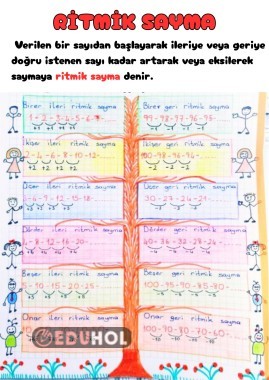 RİTMİK SAYMA
Verilen bir sayıdan başlayarak ileriye veya geriye
doğru istenen sayı kadar artarak veya eksilerek
saymaya ritmik sayma denir.
Birer ileri ritmik sayma
Birer geri ritmik sayma
1-2-3-4-5-6-
99-98-97-96-95-
İkişer ileri ritmik sayma
İkişer geri ritmik sayma
2-4-6-8-10-12-
100-98-96-94-
+2 +2 +2 +2 +2
-2 -2 -2
Üçer ileri ritmik sayma
Üçer geri ritmik sayma
3-6-9-12-15-18-
30-27-24-21-
Dörder ileri ritmik sayma
Dörder geri ritmik sayma
4-8-12-16-20-
40-36-32-28-24-
Beşer ileri ritmik sayma
Beşer geri ritmik sayma
5-10-15-20-25-
100-95-90-85-80-
Onar ileri ritmik sayma
Onar geri ritmik sayma
EDUHOL
100-90-80-70-60-